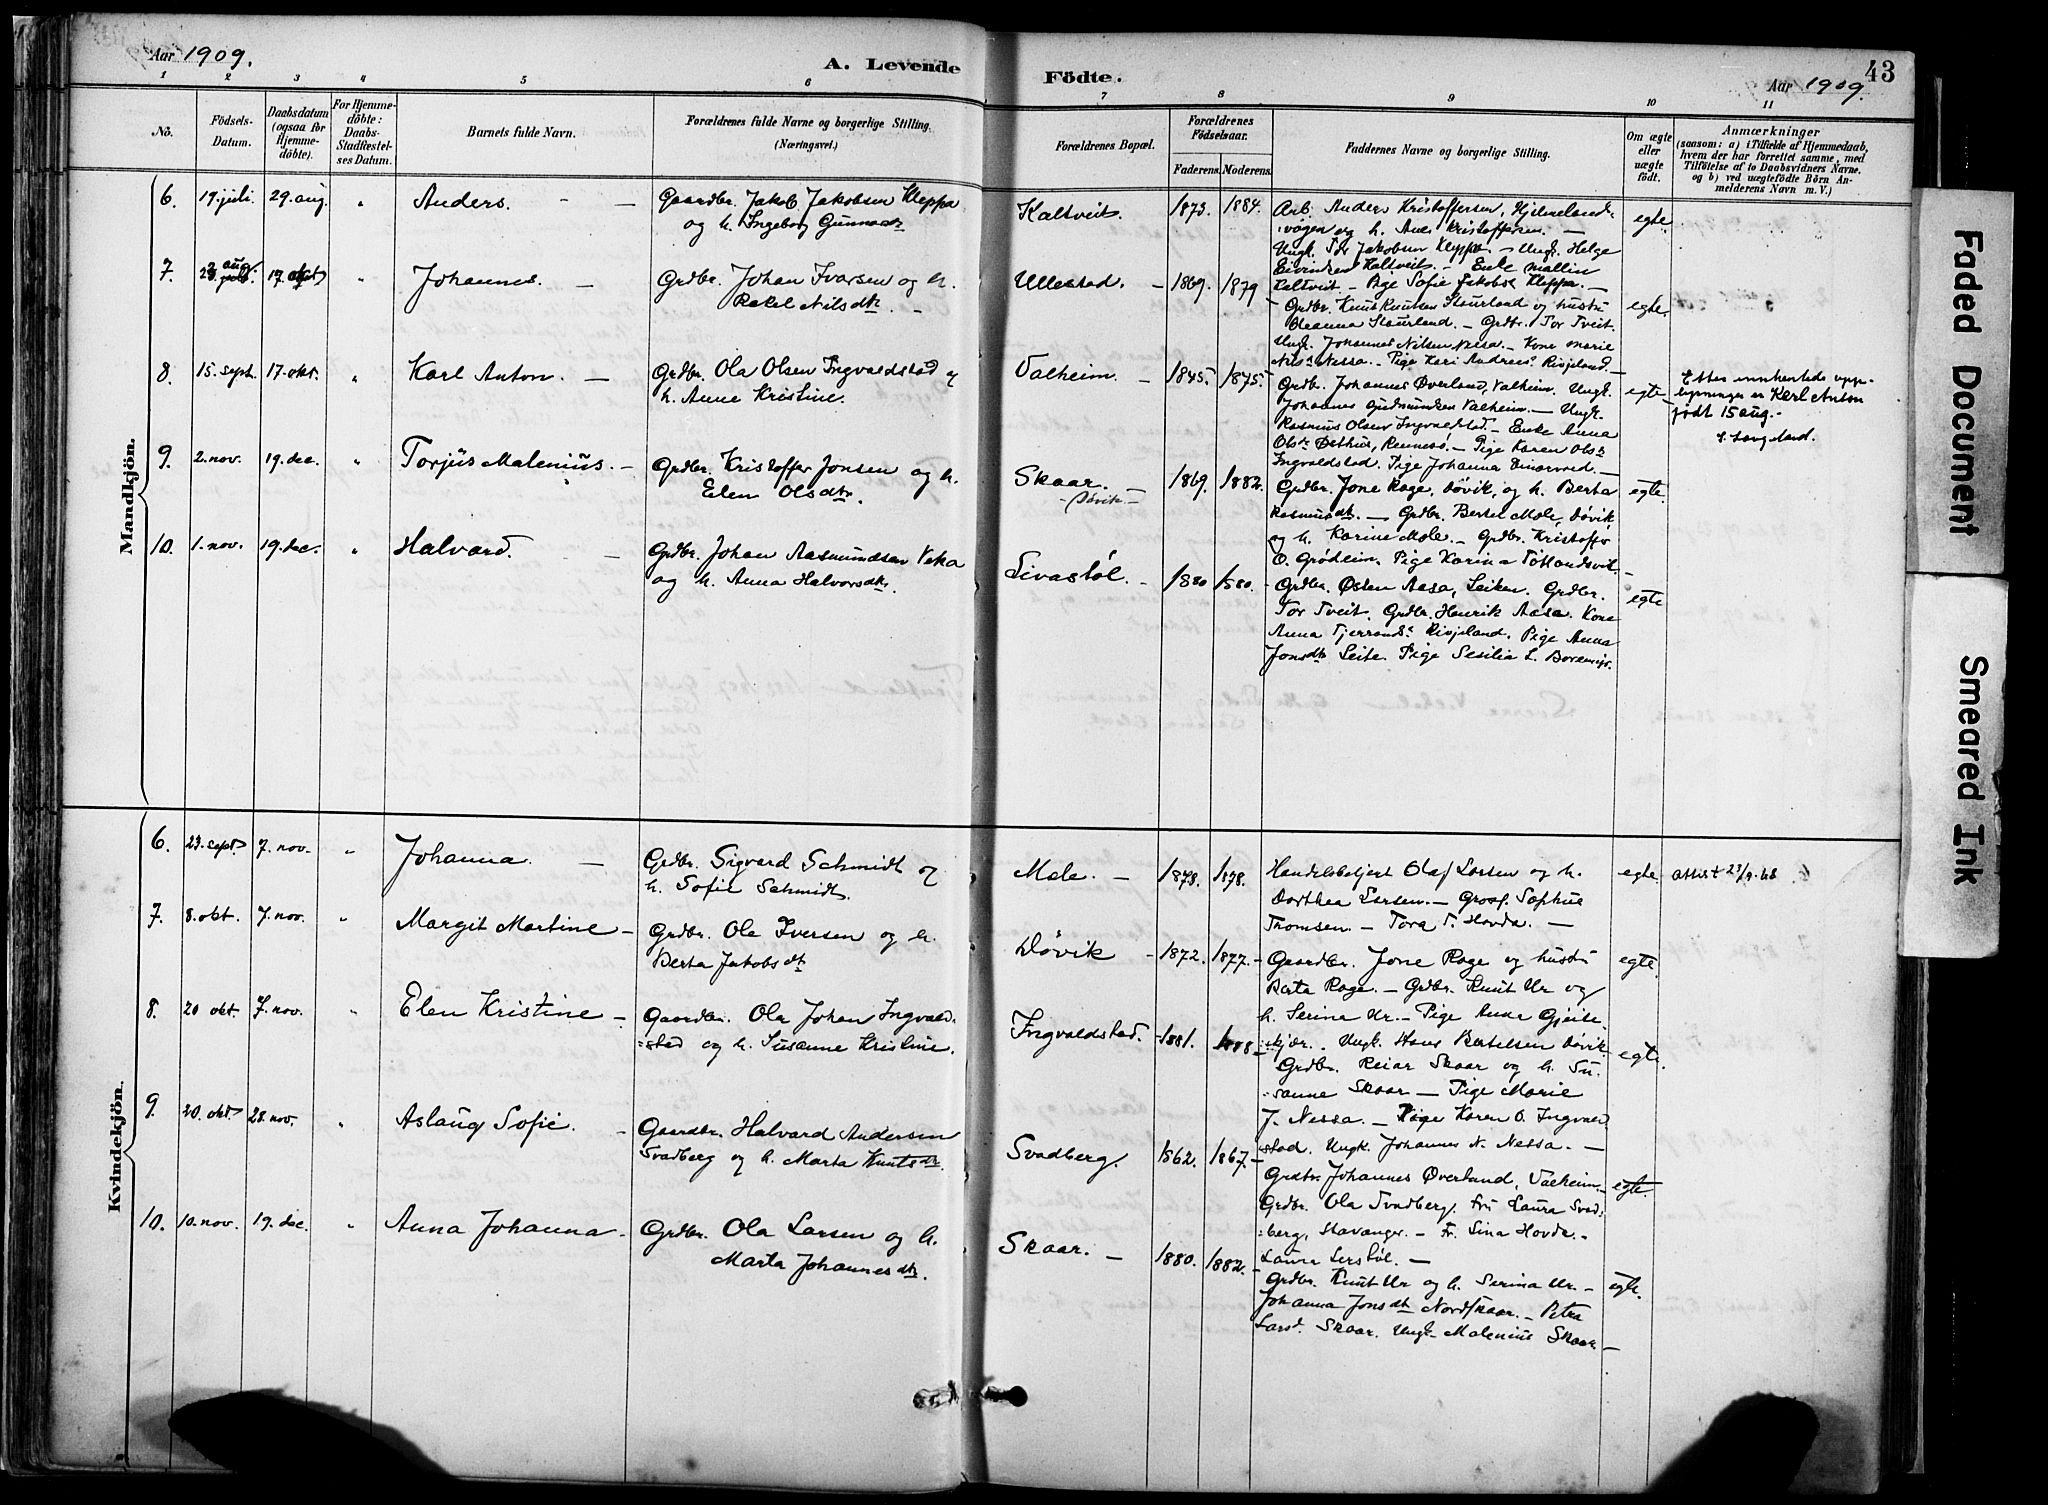 Aar 1909.
A. Levende Födte.
43
Aar 1909.
1 2 3 4 5 6 7 8 9 10 11
No.
Födsels-Datum.
Daabsdatum (ogsaa for Hjemmedöbte).
For Hjemmedöbte: Daabs-Stadfæstelses Datum.
Barnets fulde Navn.
Forældrenes fulde Navne og borgerlige Stilling.
(Næringsvei.)
Forældrenes Bopæl.
Forældrenes Födselsaar.
Faderens. Moderens.
Faddernes Navne og borgerlige Stilling.
Om ægte eller uægte födt.
Anmærkninger
(saasom: a) i Tilfælde af Hjemmedaab, hvem der har forrettet samme, med Tilföielse af to Daabsvidners Navne, og b) ved uægtefödte Börn Anmelderens Navn m. V.)
Mandkjön.
6. 19. juli. 29. aug. " Anders. — Gaardbr. Jakob Jakobsen Kleppa
og h. Ingeborg Gunnsdtr
Kaltveit. 1873. 1884. Arb. Anders Kristoffersen, Hjelmelands-
vågen og h. Anes Kristoffersen. — egte.
Ungk. Tor Jakobsen Kleppa. — Ungk. Helge
Eivindsen Kaltveit. — Enke Mallin
Kaltveit. — Pige Sofie Jakobs. Kleppa. —
7. aug. 17. okt " Johannes. — Grdbr. Johan Ivarsen og h.
Rakel Nilsdtr. —
Ullestad. — 1869. 1879 — Grdbr. Knut Knutsen Staurland og hustru
Oleanna Staurland. — Grdbr. Tor Tveit. egte.
Ungk. Johannes Nilsen Nessa. — Kone Marie
Nils. Nessa. — Pige Kari Andreas. Risjeland. —
8. 15. sept. 17. okt. " Karl Anton. — Grdbr. Ola Olsen Ingvaldstad og
h. Anne Kristine.
Valheim. — 1845. 1875. — Grdbr. Johannes Øverland, Valheim. Ungk.
Johannes Gudmundsen Valheim. — Ungk. egte
Rasmus Olsen Ingvaldstad. — Enke Anna
Olsdr Østhus, Rennesø. — Pige Karen Olsdr
Ingvaldstad. Pige Johanna —
Efter innhentede opp-
lysninger er Karl Anton
født 15 aug. —
9. 2. nov. 19. dec. " Torjus Malenius. — Grdbr. Kristoffer Jonsen og h.
Elen Olsdtr.
Skaar. — Døvik — 1869. 1882. Grdbr. Jone Rage, Døvik, og h. Berta
Rasmusdtr. — Grdbr. Bertel Mæle, Døvik, egte.
og h. Karine Mæle. — Grdbr. Kristoffer
O. Grødeim. Pige Karina Tøtlandsvik. —
10. 1. nov. 19. dec. " Halvard. — Grdbr. Johan Aasmundsen Veka
og h. Anna Halvorsdtr.
Livastøl. — 1880 1880. — Grdbr. Østen Aasa, Leiken. Grdbr.
Tor Tveit. Grdbr. Henrik Aasa. Kone egte
Anna Tjerrands. Risjeland. Pige Anna
Jonsdtr Leite. Pige Sesilia L.
Kvindekjön.
6. 23. sept. 7. nov. " Johanna. — Grdbr. Sigvard Schmidt og
h. Sofie Schmidt.
Mæle. — 1873. 1878. Handelsbetjent Olaf Larsen og h. egte. attest 23/9-68
Dorthea Larsen. — Gross. Sophus
Tromsen. — Tora T. Hovda. —
7. 8. okt. 7. nov. " Margit Martine — Grdbr. Ola Iversen og h.
Berta Jakobsdtr
Døvik — 1872. 1877. — Gaardbr. Jone Rage og hustru egte.
Berta Rage. — Grdbr. Knut Ur og
h. Serina Ur. — Pige Anna Gjeite-
kjær. Ungk. Hans Bertelsen Døvik.
8. 20 okt. 7. nov. " Elen Kristine — Gaardbr. Ola Johan Ingvald-
stad og h. Susanne Kristine.
Ingvaldstad. — 1881. 1888 — egte.
Grdbr. Reiar Skaar og h. Su-
sanne Skaar — Pige Marie
J. Nessa. — Pige Karen O. Ingvald
stad. Ungk. Johannes N. Nessa. —
9. 20. okt 28. nov. " Aslaug Sofie. — Gaardbr. Halvard Andersen
Svadberg og h. Marta Knutsdtr.
Svadberg. 1862. 1867. — Grdbr. Johannes Øverland, Valheim. — egte.
Grdbr. Ola Svadberg. Fru Laura Svad-
berg, Stavanger. — Fr. Sina Hovda. —
Laura Lerstøl. —
10. 10. nov. 19. dec. " Anna Johanna — Grdbr. Ola Larsen og h.
Marta Johannesdtr.
Skaar. — 1880. 1882. — Grdbr. Knut Ur og h. Serina Ur. — egte.
Johanna Jonsdtr Nordskaar. — Petra
Larsd. Skaar. Ungk. Malenius Skaar. —
Faded Document
Smeared Ink